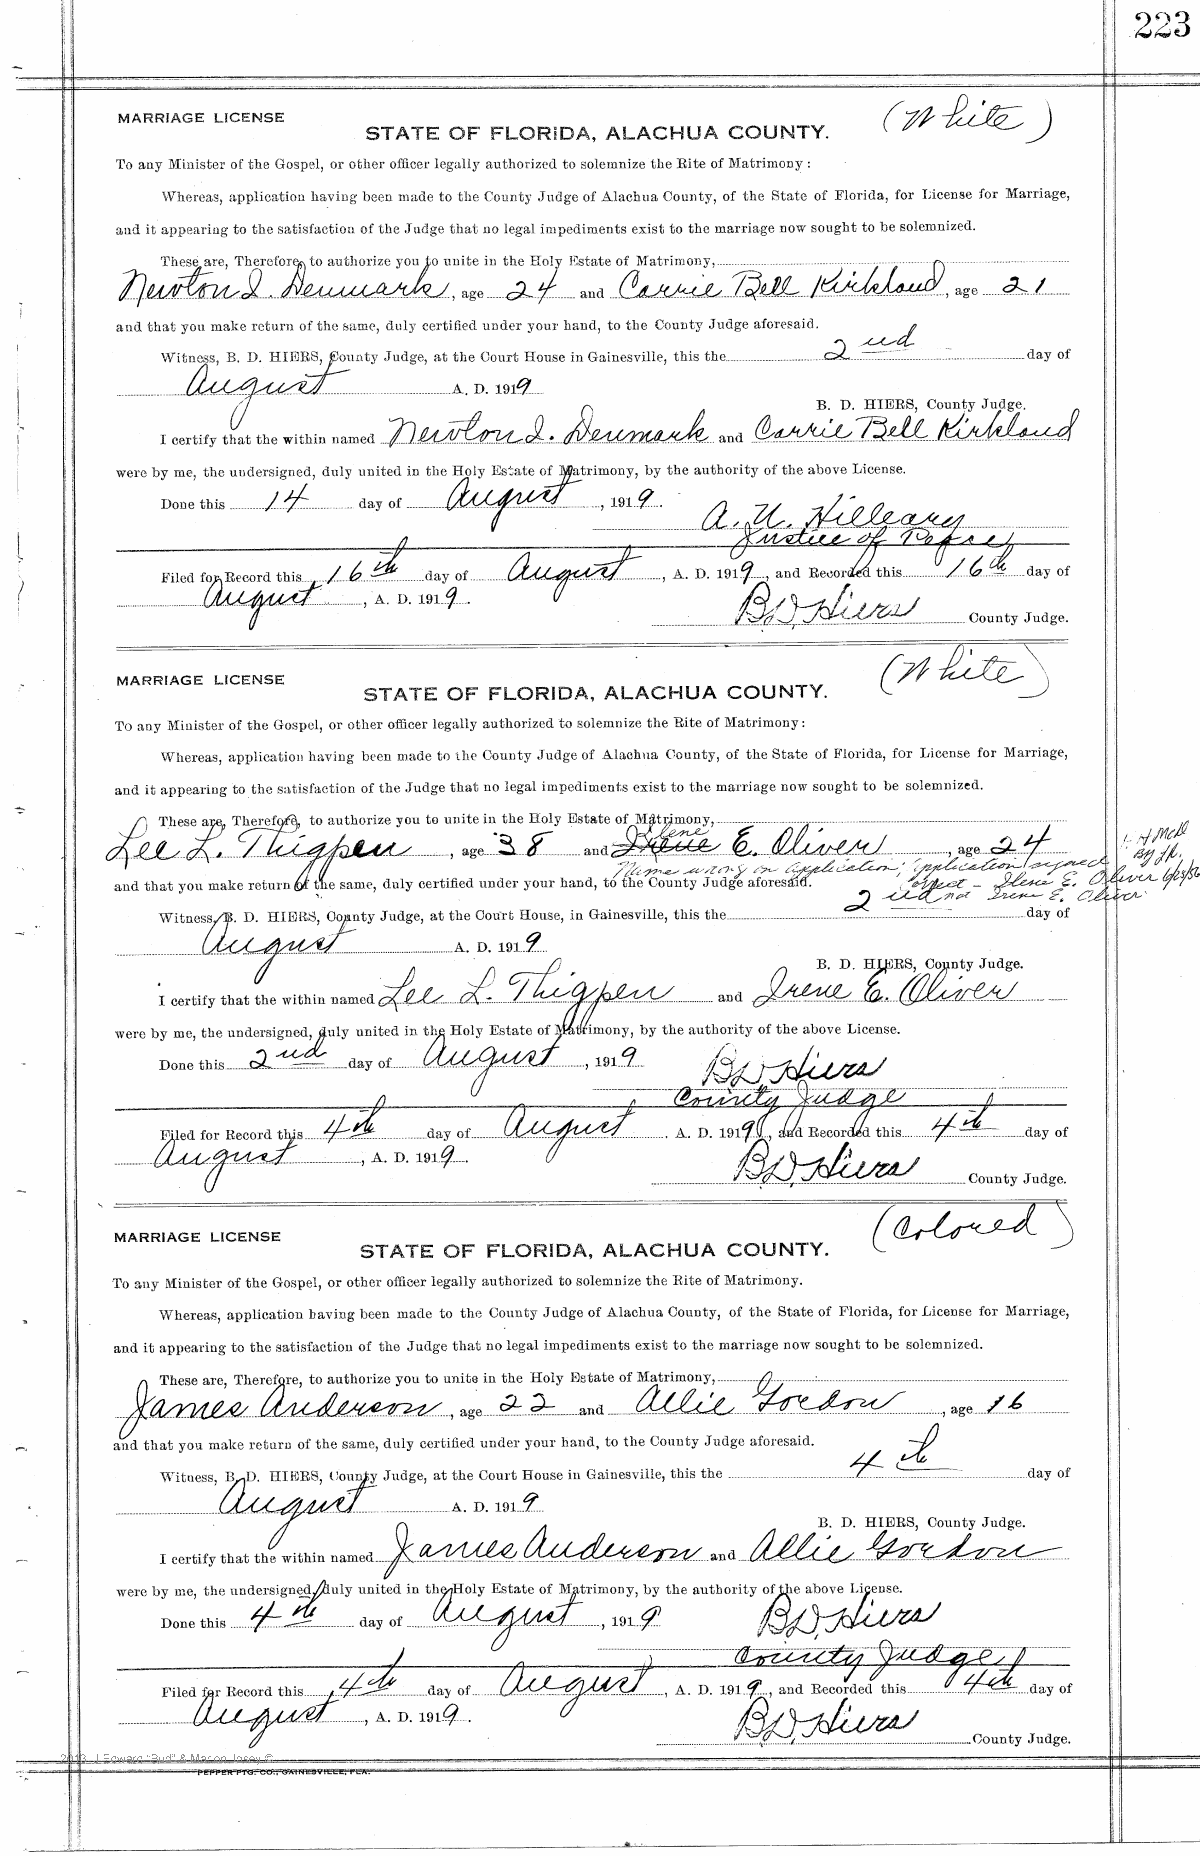 223
MARRIAGE LICENSE
(White)
STATE OF FLORIDA, ALACHUA COUNTY.
To any Minister of the Gospel, or other officer legally authorized to solemnize the Rite of Matrimony:
Whereas, application having been made to the County Judge of Alachua County, of the State of Florida, for License for Marriage,
and it appearing to the satisfaction of the Judge that no legal impediments exist to the marriage now sought to be solemnized.
These are, Therefore, to authorize you to unite in the Holy Estate of Matrimony,
Newton I. Denmark, age 24 and Carrie Bell Kirkland, age 21
and that you make return of the same, duly certified under your hand, to the County Judge aforesaid.
Witness, B. D. HIERS, County Judge, at the Court House in Gainesville, this the 2nd day of
August A. D. 1919
B. D. HIERS, County Judge.
I certify that the within named Newton I. Denmark and Carrie Bell Kirkland
were by me, the undersigned, duly united in the Holy Estate of Matrimony, by the authority of the above License.
Done this 14 day of August, 1919.
A. U. Hilleary
Justice of Peace
Filed for Record this 16th day of August, A. D. 1919, and Recorded this 16th day of
August, A. D. 1919.
B.D. Hiers County Judge.
MARRIAGE LICENSE
(White)
STATE OF FLORIDA, ALACHUA COUNTY.
To any Minister of the Gospel, or other officer legally authorized to solemnize the Rite of Matrimony:
Whereas, application having been made to the County Judge of Alachua County, of the State of Florida, for License for Marriage,
and it appearing to the satisfaction of the Judge that no legal impediments exist to the marriage now sought to be solemnized.
These are, Therefore, to authorize you to unite in the Holy Estate of Matrimony,
Ilene
Lee L. Thigpen, age 38 and Irene E. Oliver, age 24
Name wrong on application; application signed
correct - Ilene E. Oliver 6/25/56
not Irene E. Oliver
By
and that you make return of the same, duly certified under your hand, to the County Judge aforesaid.
Witness, B. D. HIERS, County Judge, at the Court House, in Gainesville, this the 2nd day of
August A. D. 1919
B. D. HIERS, County Judge.
I certify that the within named Lee L. Thigpen and Irene E. Oliver
were by me, the undersigned, duly united in the Holy Estate of Matrimony, by the authority of the above License.
Done this 2nd day of August, 1919
B.D. Hiers
County Judge
Filed for Record this 4th day of August, A. D. 1919, and Recorded this 4th day of
August, A. D. 1919.
B.D. Hiers County Judge.
MARRIAGE LICENSE
(Colored)
STATE OF FLORIDA, ALACHUA COUNTY.
To any Minister of the Gospel, or other officer legally authorized to solemnize the Rite of Matrimony.
Whereas, application having been made to the County Judge of Alachua County, of the State of Florida, for License for Marriage,
and it appearing to the satisfaction of the Judge that no legal impediments exist to the marriage now sought to be solemnized.
These are, Therefore, to authorize you to unite in the Holy Estate of Matrimony,
James Anderson, age 22 and Allie Gordon, age 16
and that you make return of the same, duly certified under your hand, to the County Judge aforesaid.
Witness, B. D. HIERS, County Judge, at the Court House in Gainesville, this the 4th day of
August A. D. 1919
B. D. HIERS, County Judge.
I certify that the within named James Anderson and Allie Gordon
were by me, the undersigned, duly united in the Holy Estate of Matrimony, by the authority of the above License.
Done this 4th day of August, 1919
B.D. Hiers
County Judge
Filed for Record this 4th day of August, A. D. 1919, and Recorded this 4th day of
August, A. D. 1919.
B.D. Hiers County Judge.
PEPPER PTG. CO., GAINESVILLE, FLA.